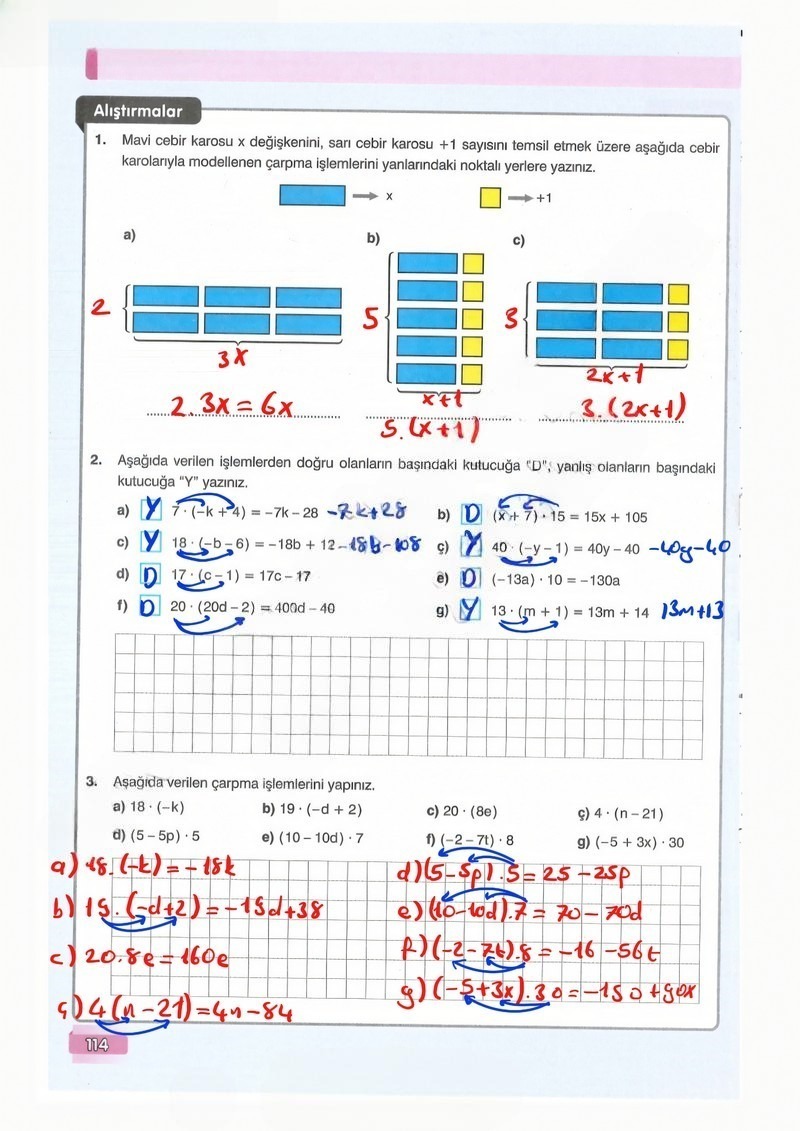 Alıştırmalar
1. Mavi cebir karosu x değişkenini, sarı cebir karosu +1 sayısını temsil etmek üzere aşağıda cebir
karolarıyla modellenen çarpma işlemlerini yanlarındaki noktalı yerlere yazınız.
x +1
a) b) c)
2 5 3
3x x+1 2x+1
2.3x = 6x 5.(x+1) 3.(2x+1)
2. Aşağıda verilen işlemlerden doğru olanların başındaki kutucuğa "D", yanlış olanların başındaki
kutucuğa "Y" yazınız.
a) Y 7 · (–k + 4) = –7k – 28 -7k+28 b) D (x + 7) · 15 = 15x + 105
c) Y 18 · (–b – 6) = –18b + 12 -18b-108 ç) Y 40 · (–y – 1) = 40y – 40 -40y-40
d) D 17 · (c – 1) = 17c – 17 e) D (–13a) · 10 = –130a
f) D 20 · (20d – 2) = 400d – 40 g) Y 13 · (m + 1) = 13m + 14 13m+13
3. Aşağıda verilen çarpma işlemlerini yapınız.
a) 18 · (–k) b) 19 · (–d + 2) c) 20 · (8e) ç) 4 · (n – 21)
d) (5 – 5p) · 5 e) (10 – 10d) · 7 f) (–2 – 7t) · 8 g) (–5 + 3x) · 30
a) 18.(-k) = -18k d) (5-5p).5 = 25-25p
b) 19.(-d+2) = -19d+38 e) (10-10d).7 = 70-70d
c) 20.8e = 160e f) (-2-7t).8 = -16-56t
ç) 4(n-21) = 4n-84 g) (-5+3x).30 = -150+90x
114